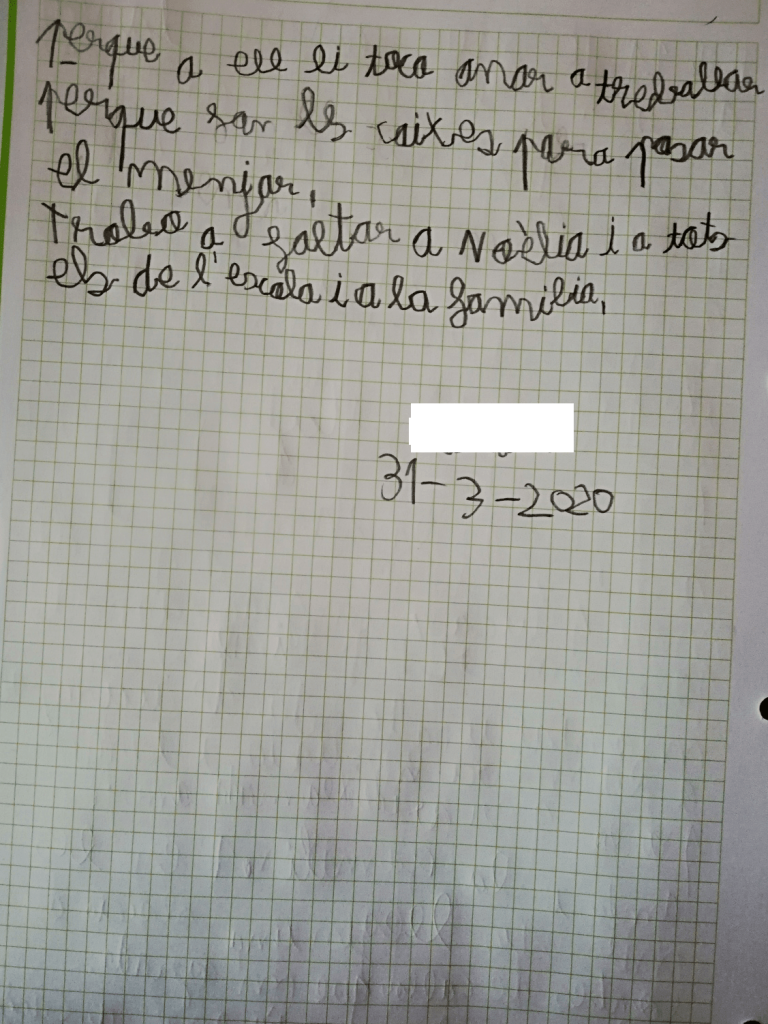 perque a ell li toca anar a tredballar
perque far les caixes para pasar
el menjar.
Trobo a faltar a Noèlia i a tots
els de l'escola i a la familia,
31-3-2020